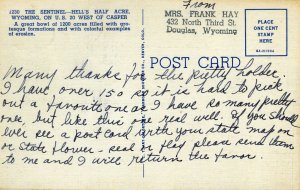 1230 THE SENTINEL—HELL'S HALF ACRE,
WYOMING, ON U. S. 20 WEST OF CASPER
A great bowl of 1200 acres filled with gro-
tesque formations and with colorful examples
of erosion.
From
MRS. FRANK HAY
432 North Third St.
Douglas, Wyoming
PLACE
ONE CENT
STAMP
HERE
POST CARD
Many thanks for the pretty holder.
I have over 150 so it is hard to pick
out a favorite one as I have so many pretty
one, but like this one real well. If you should
ever see a post card with your state map on
or State flower - seal or flag please send them
to me and I will return the favor.